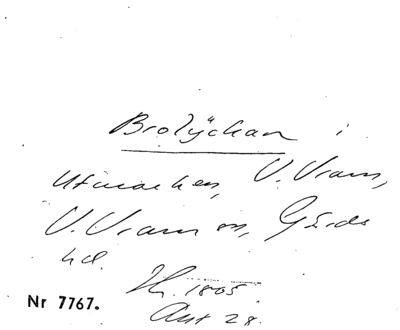 Brolyckan i
Utmarken, V. Vram,
V. Vram sn, Gärds
hd. Jh. 1805
Akt 28.
Nr 7767.